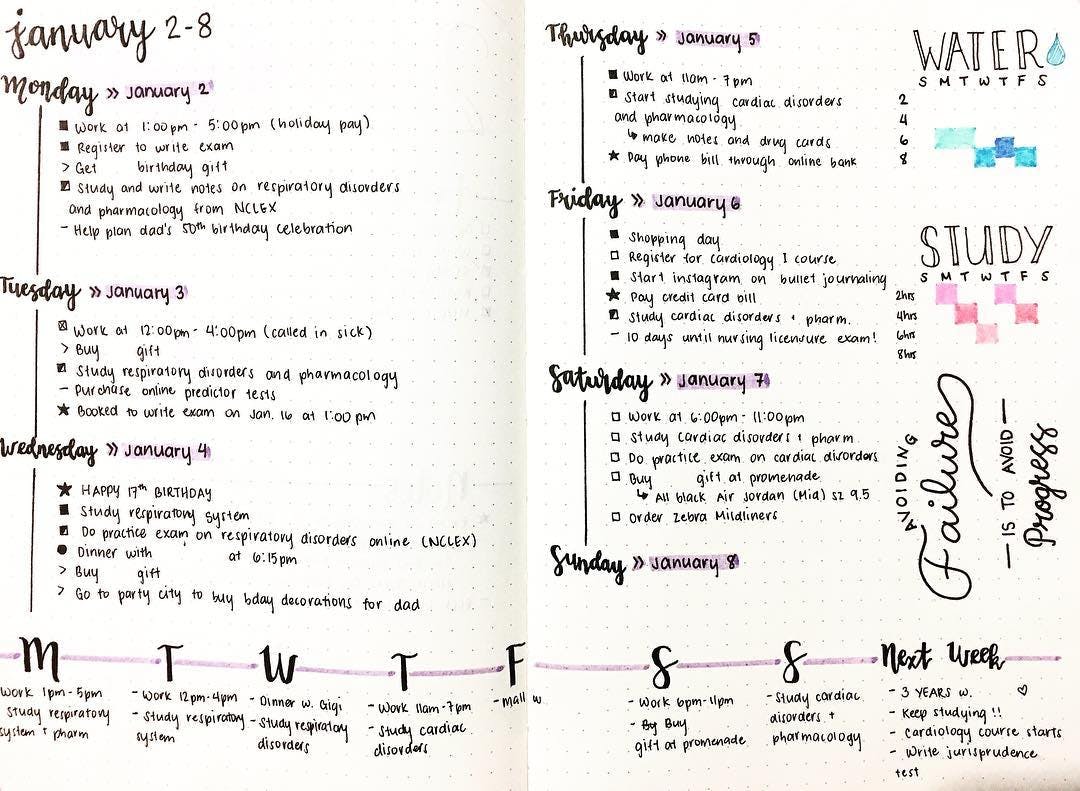 january 2-8
Monday » January 2
Work at 1:00pm - 5:00pm (holiday pay)
Register to write exam
> Get birthday gift
Study and write notes on respiratory disorders
and pharmacology from NCLEX
- Help plan dad's 50th birthday celebration
Tuesday » January 3
Work at 12:00pm - 4:00pm (called in sick)
> Buy gift
Study respiratory disorders and pharmacology
- Purchase online predictor tests
★ Booked to write exam on Jan. 16 at 1:00 pm
Wednesday » January 4
★ HAPPY 17th BIRTHDAY
Study respiratory system
Do practice exam on respiratory disorders online (NCLEX)
Dinner with at 6:15pm
> Buy gift
> Go to party city to buy bday decorations for dad
Thursday » January 5
Work at 11am - 7pm
Start studying cardiac disorders
and pharmacology
↳ make notes and drug cards
★ Pay phone bill through online bank
Friday » January 6
Shopping day
Register for cardiology I course
Start instagram on bullet journaling
★ Pay credit card bill
Study cardiac disorders + pharm.
- 10 days until nursing licensure exam!
Saturday » January 7
Work at 6:00pm - 11:00pm
Study cardiac disorders + pharm
Do practice exam on cardiac disorders
Buy gift at promenade
↳ All black Air Jordan (Mid) sz 9.5
Order Zebra Mildliners
Sunday » January 8
WATER
S M T W T F S
2
4
6
8
STUDY
S M T W T F S
2hrs
4hrs
6hrs
8hrs
AVOIDING
Failure
— IS TO AVOID —
Progress
M
Work 1pm-5pm
Study respiratory
system + pharm
T
- Work 12pm-4pm
- Study respiratory
system
W
- Dinner w. Gigi
- Study respiratory
disorders
T
- Work 11am-7pm
- Study cardiac
disorders
F
- mall w
S
- Work 6pm-11pm
- Buy
gift at promenade
S
- Study cardiac
disorders +
pharmacology
Next Week
- 3 YEARS w. ♡
- Keep studying !!
- Cardiology course starts
- Write jurisprudence
test